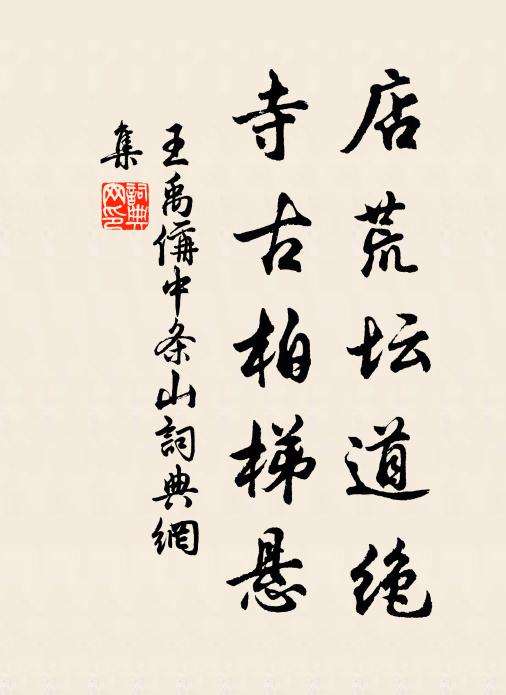 店荒坛道绝
寺古柏梯悬
王禹偁中条山詞典網
集
詞典
网印